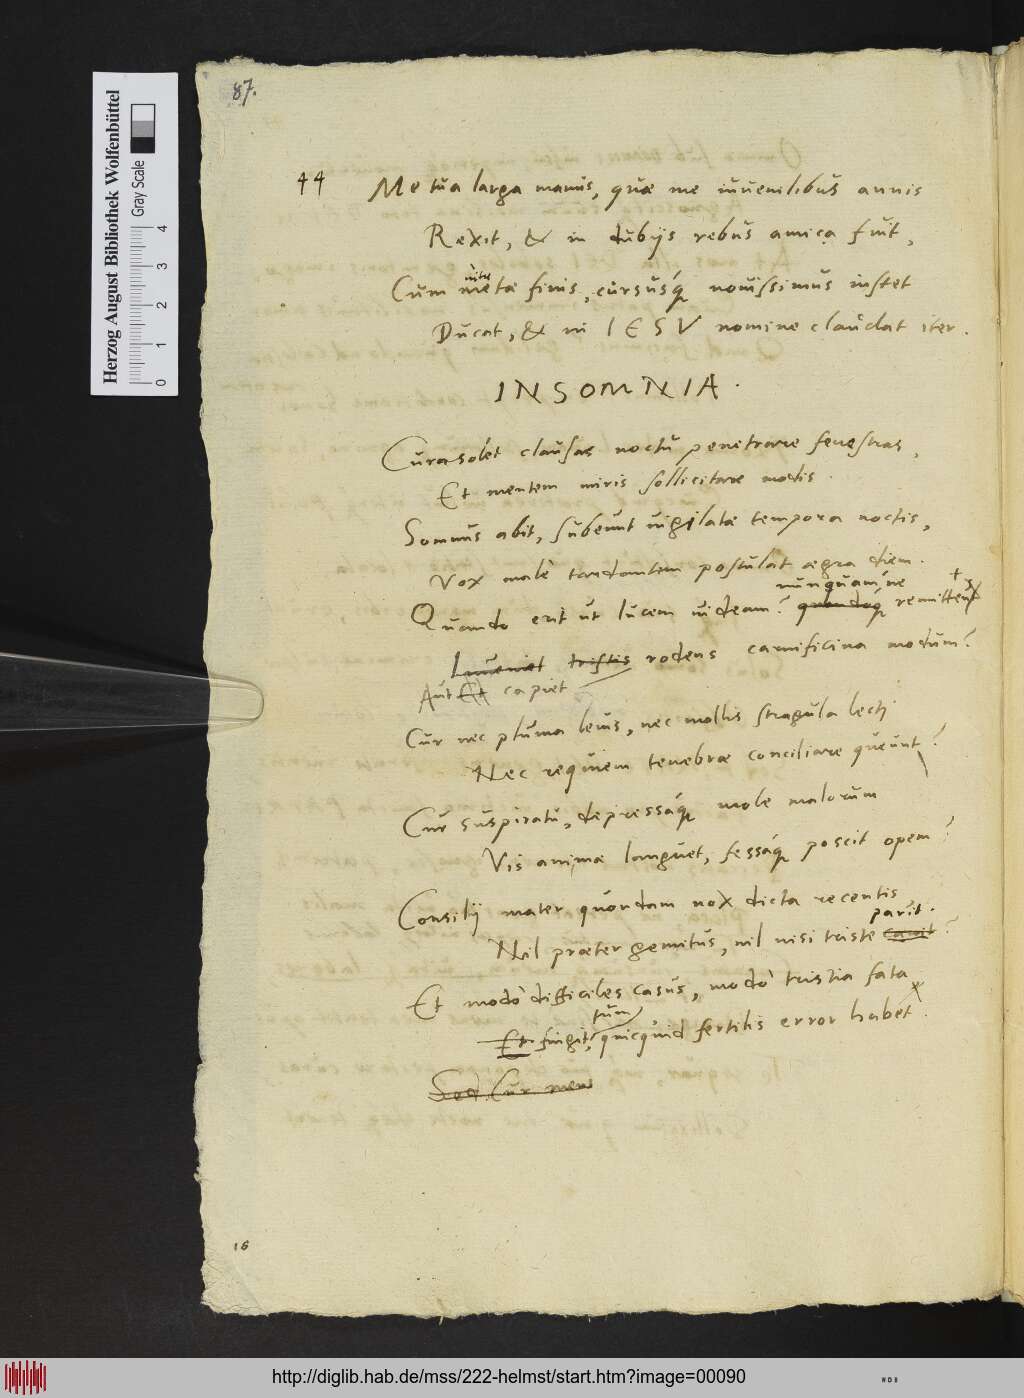 87.
44 Me tua larga manus, quae me iuuenilibus annis
Rexit, & in dubijs rebus amica fuit,
vitae
Cum metae finis, cursusq́ nouissimus instet
Ducat, & in IESV nomine claudat iter.
INSOMNIA.
Cura solet clausas noctu penetrare fenestras,
Et mentem miris sollicitare modis.
Somnus abit, subeunt uigilatae tempora noctis,
Vox male tandantem postulat aegra diem.
nunquam ne
Quando erit ut lucem uideam? quandoq́ remittent
Inueniet tristis rodens carnificina modum?
Aut Et capiet
Cur nec pluma leuis, nec mollis stragula lecti
Nec requiem tenebrae conciliare queunt?
Cur suspiratu, depressaq́ mole malorum
Vis animae languet, fessaq́ poscit opem?
Consilij mater quondam nox dicta recentis
parit.
Nil praeter gemitus, nil nisi triste ?
Et modo difficiles casus, modo tristia fata
tum
Et fingit, quicquid fertilis error habet.
Sed Cur mens
16
Herzog August Bibliothek Wolfenbüttel
Gray Scale
0 1 2 3 4
http://diglib.hab.de/mss/222-helmst/start.htm?image=00090
WDB